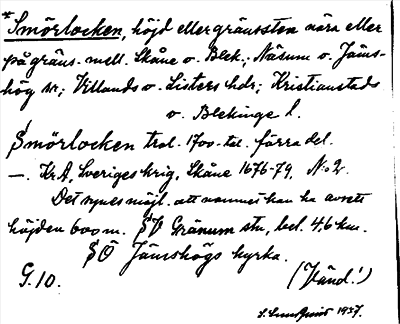 *Smörlocken, höjd eller gränssten nära eller
på gräns. mell. Skåne o. Blek.; Näsum o. Jäms-
hög sn; Villands o. Listers hdr; Kristianstads
o. Blekinge l.
Smörlocken trol. 1700-tal. förra del.
—. Kr. A, Sveriges krig, Skåne 1676-79, No 2.
Det synes möjl. att namnet kan ha avsett
höjden 600 m. SV Gränum stn, bel. 4,6 km.
SÖ Jämshögs kyrka.
G. 10. (Vänd!)
1937.